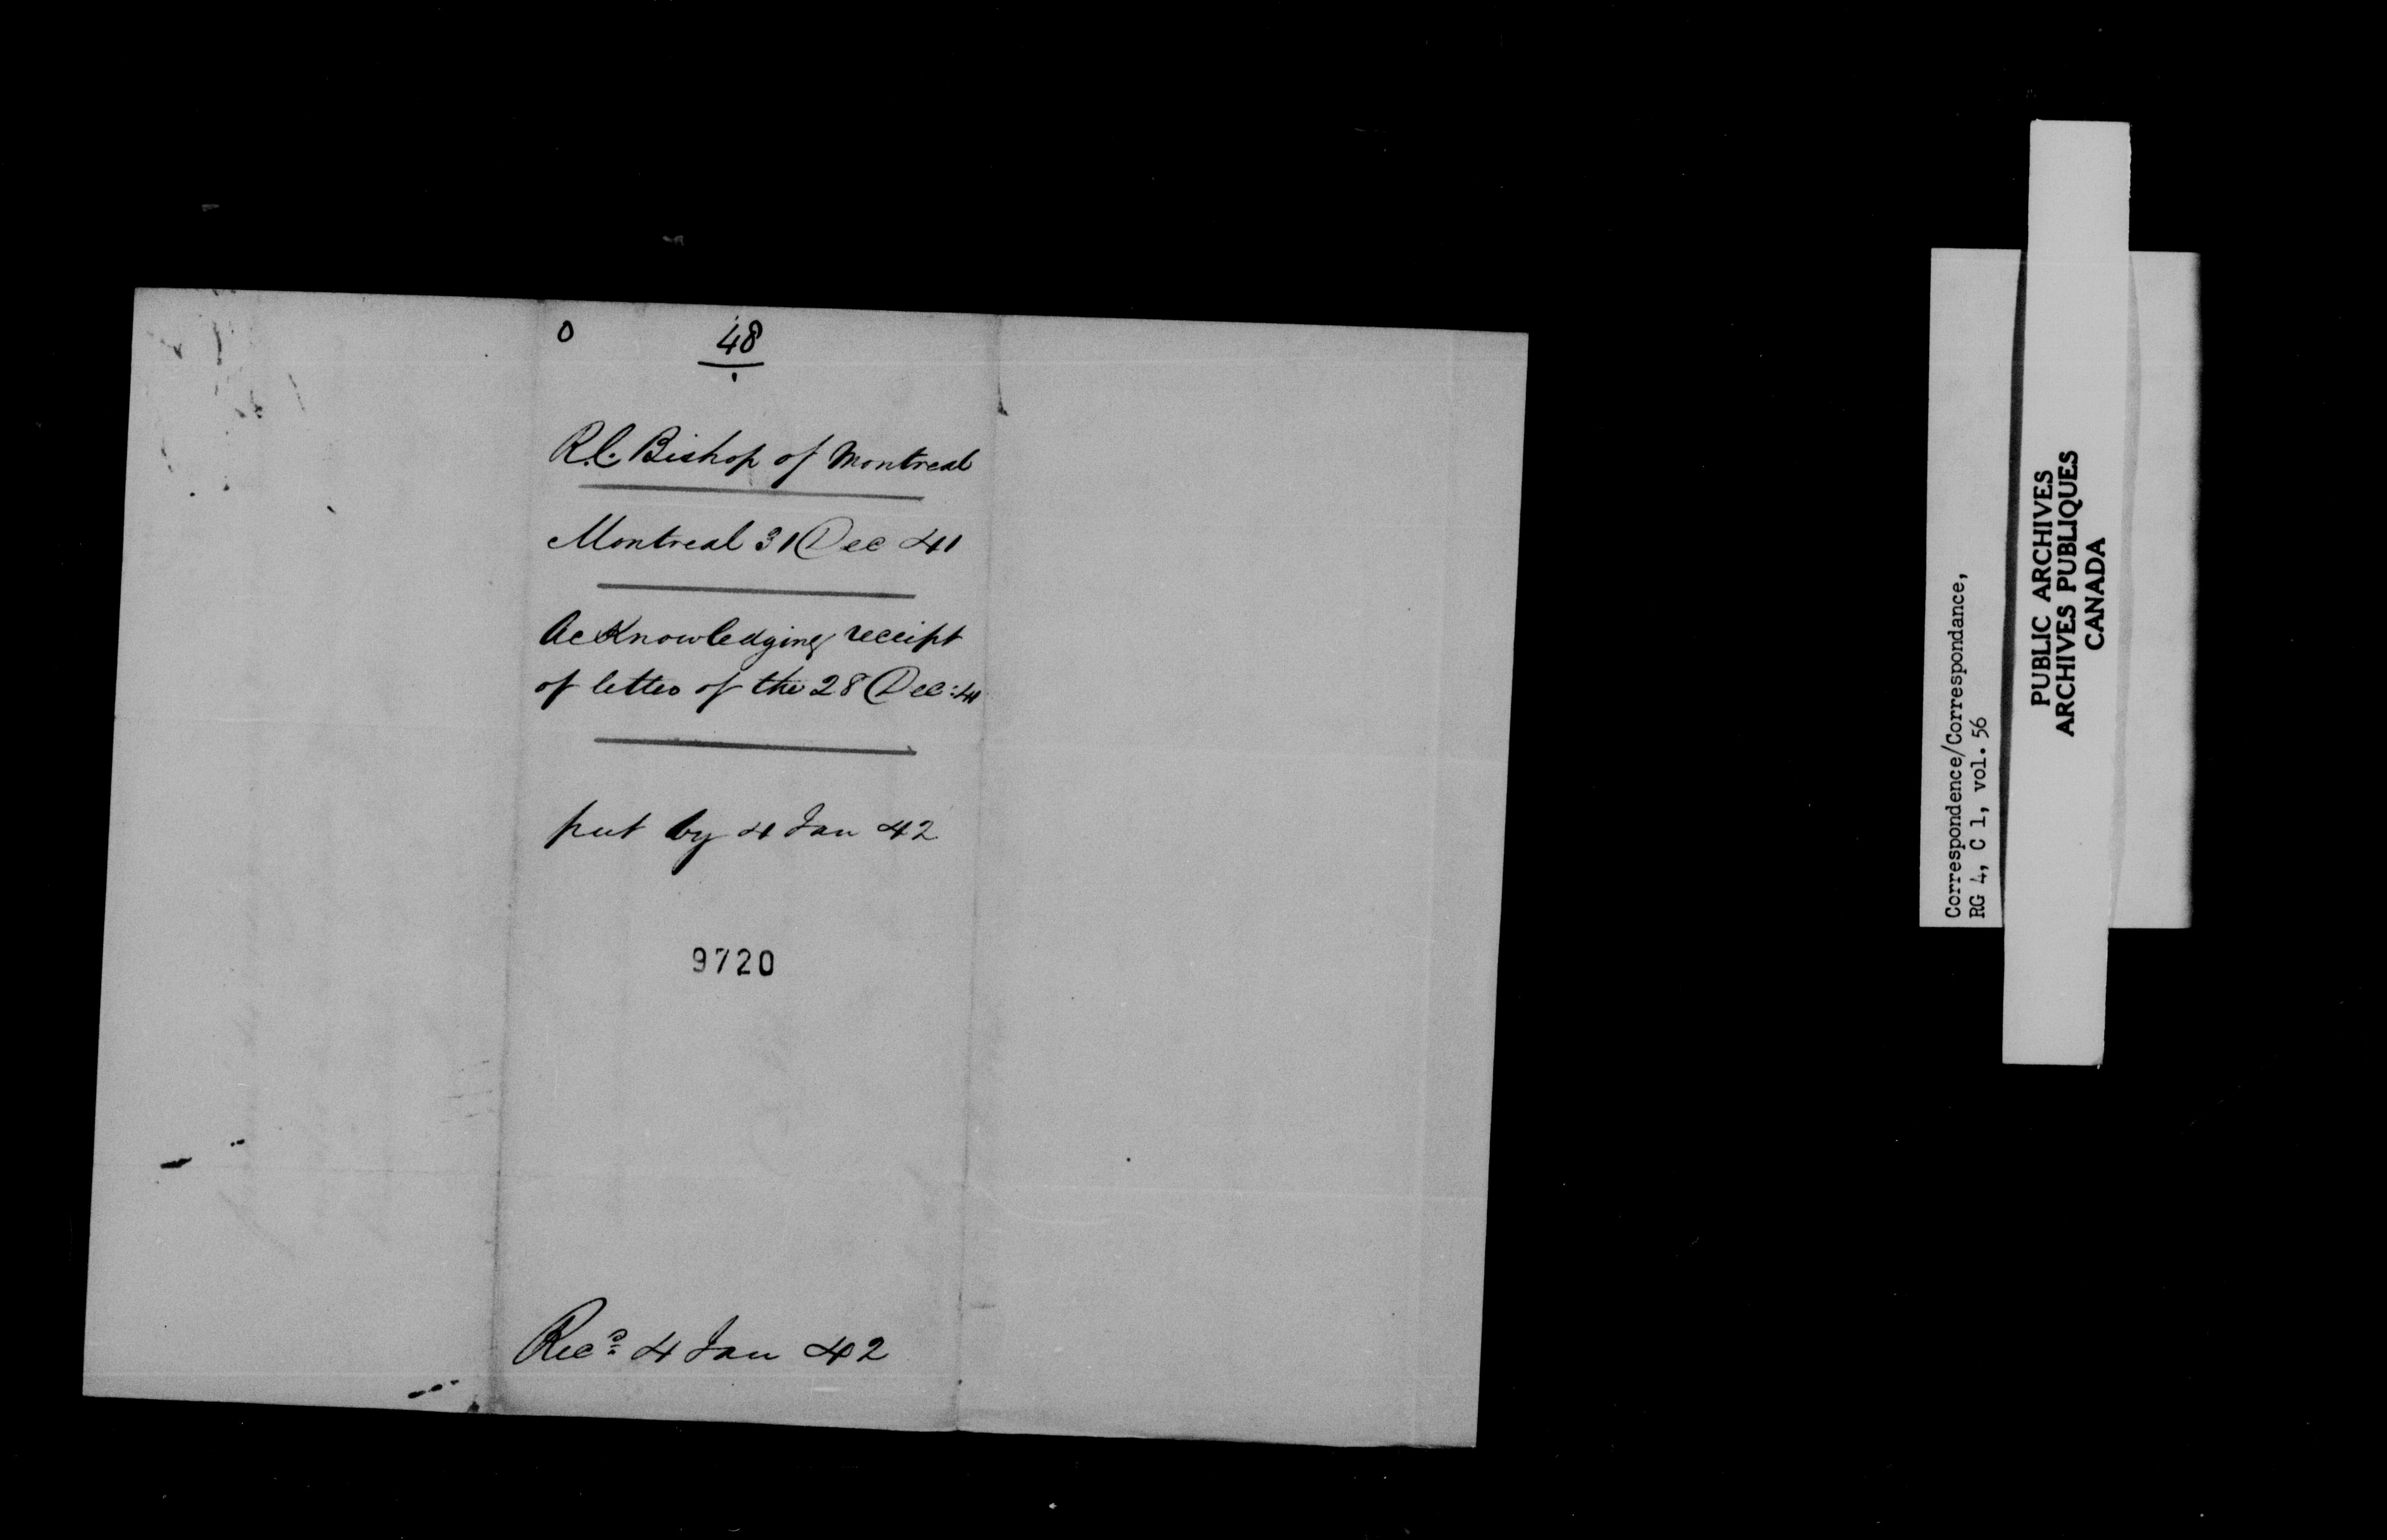 0
48
R.C. Bishop of Montreal
Montreal 31 Dec 41
Acknowledging receipt
of letter of the 28 Dec: 41
put by 4 Jan 42
9720
Recd 4 Jan 42
Correspondence/Correspondance,
RG 4, C 1, vol. 56
PUBLIC ARCHIVES
ARCHIVES PUBLIQUES
CANADA